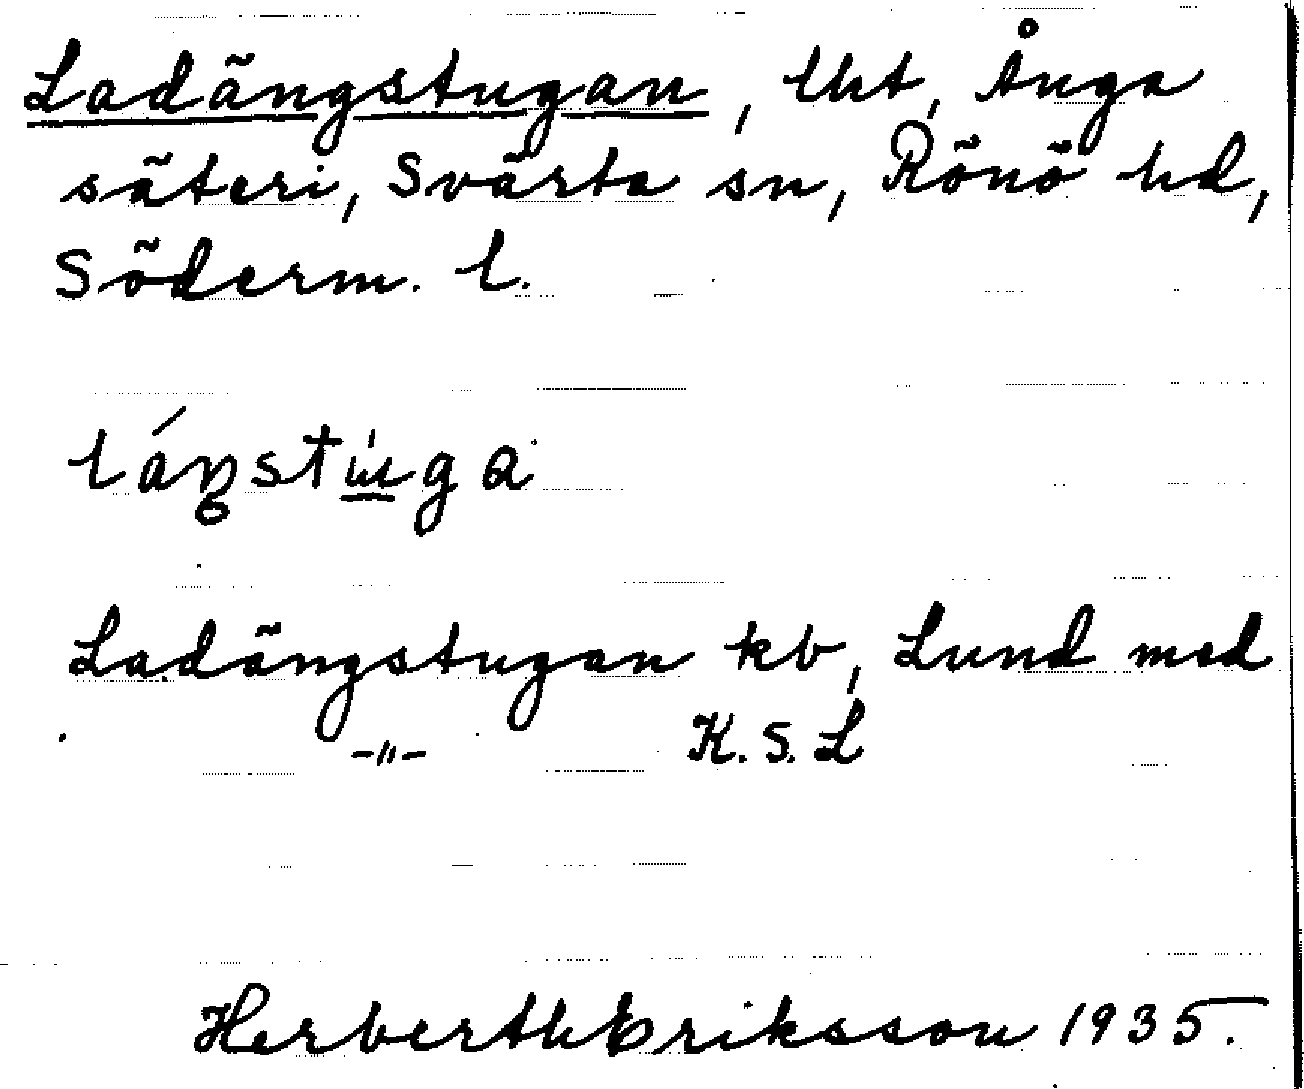 Ladängstugan, lht, Ånga
säteri, Svärta sn, Rönö hd,
Söderm. l.
láŋstu̲̍ga
Ladängstugan kb, Lund med
-"- K.S.L
Herberth Eriksson 1935.